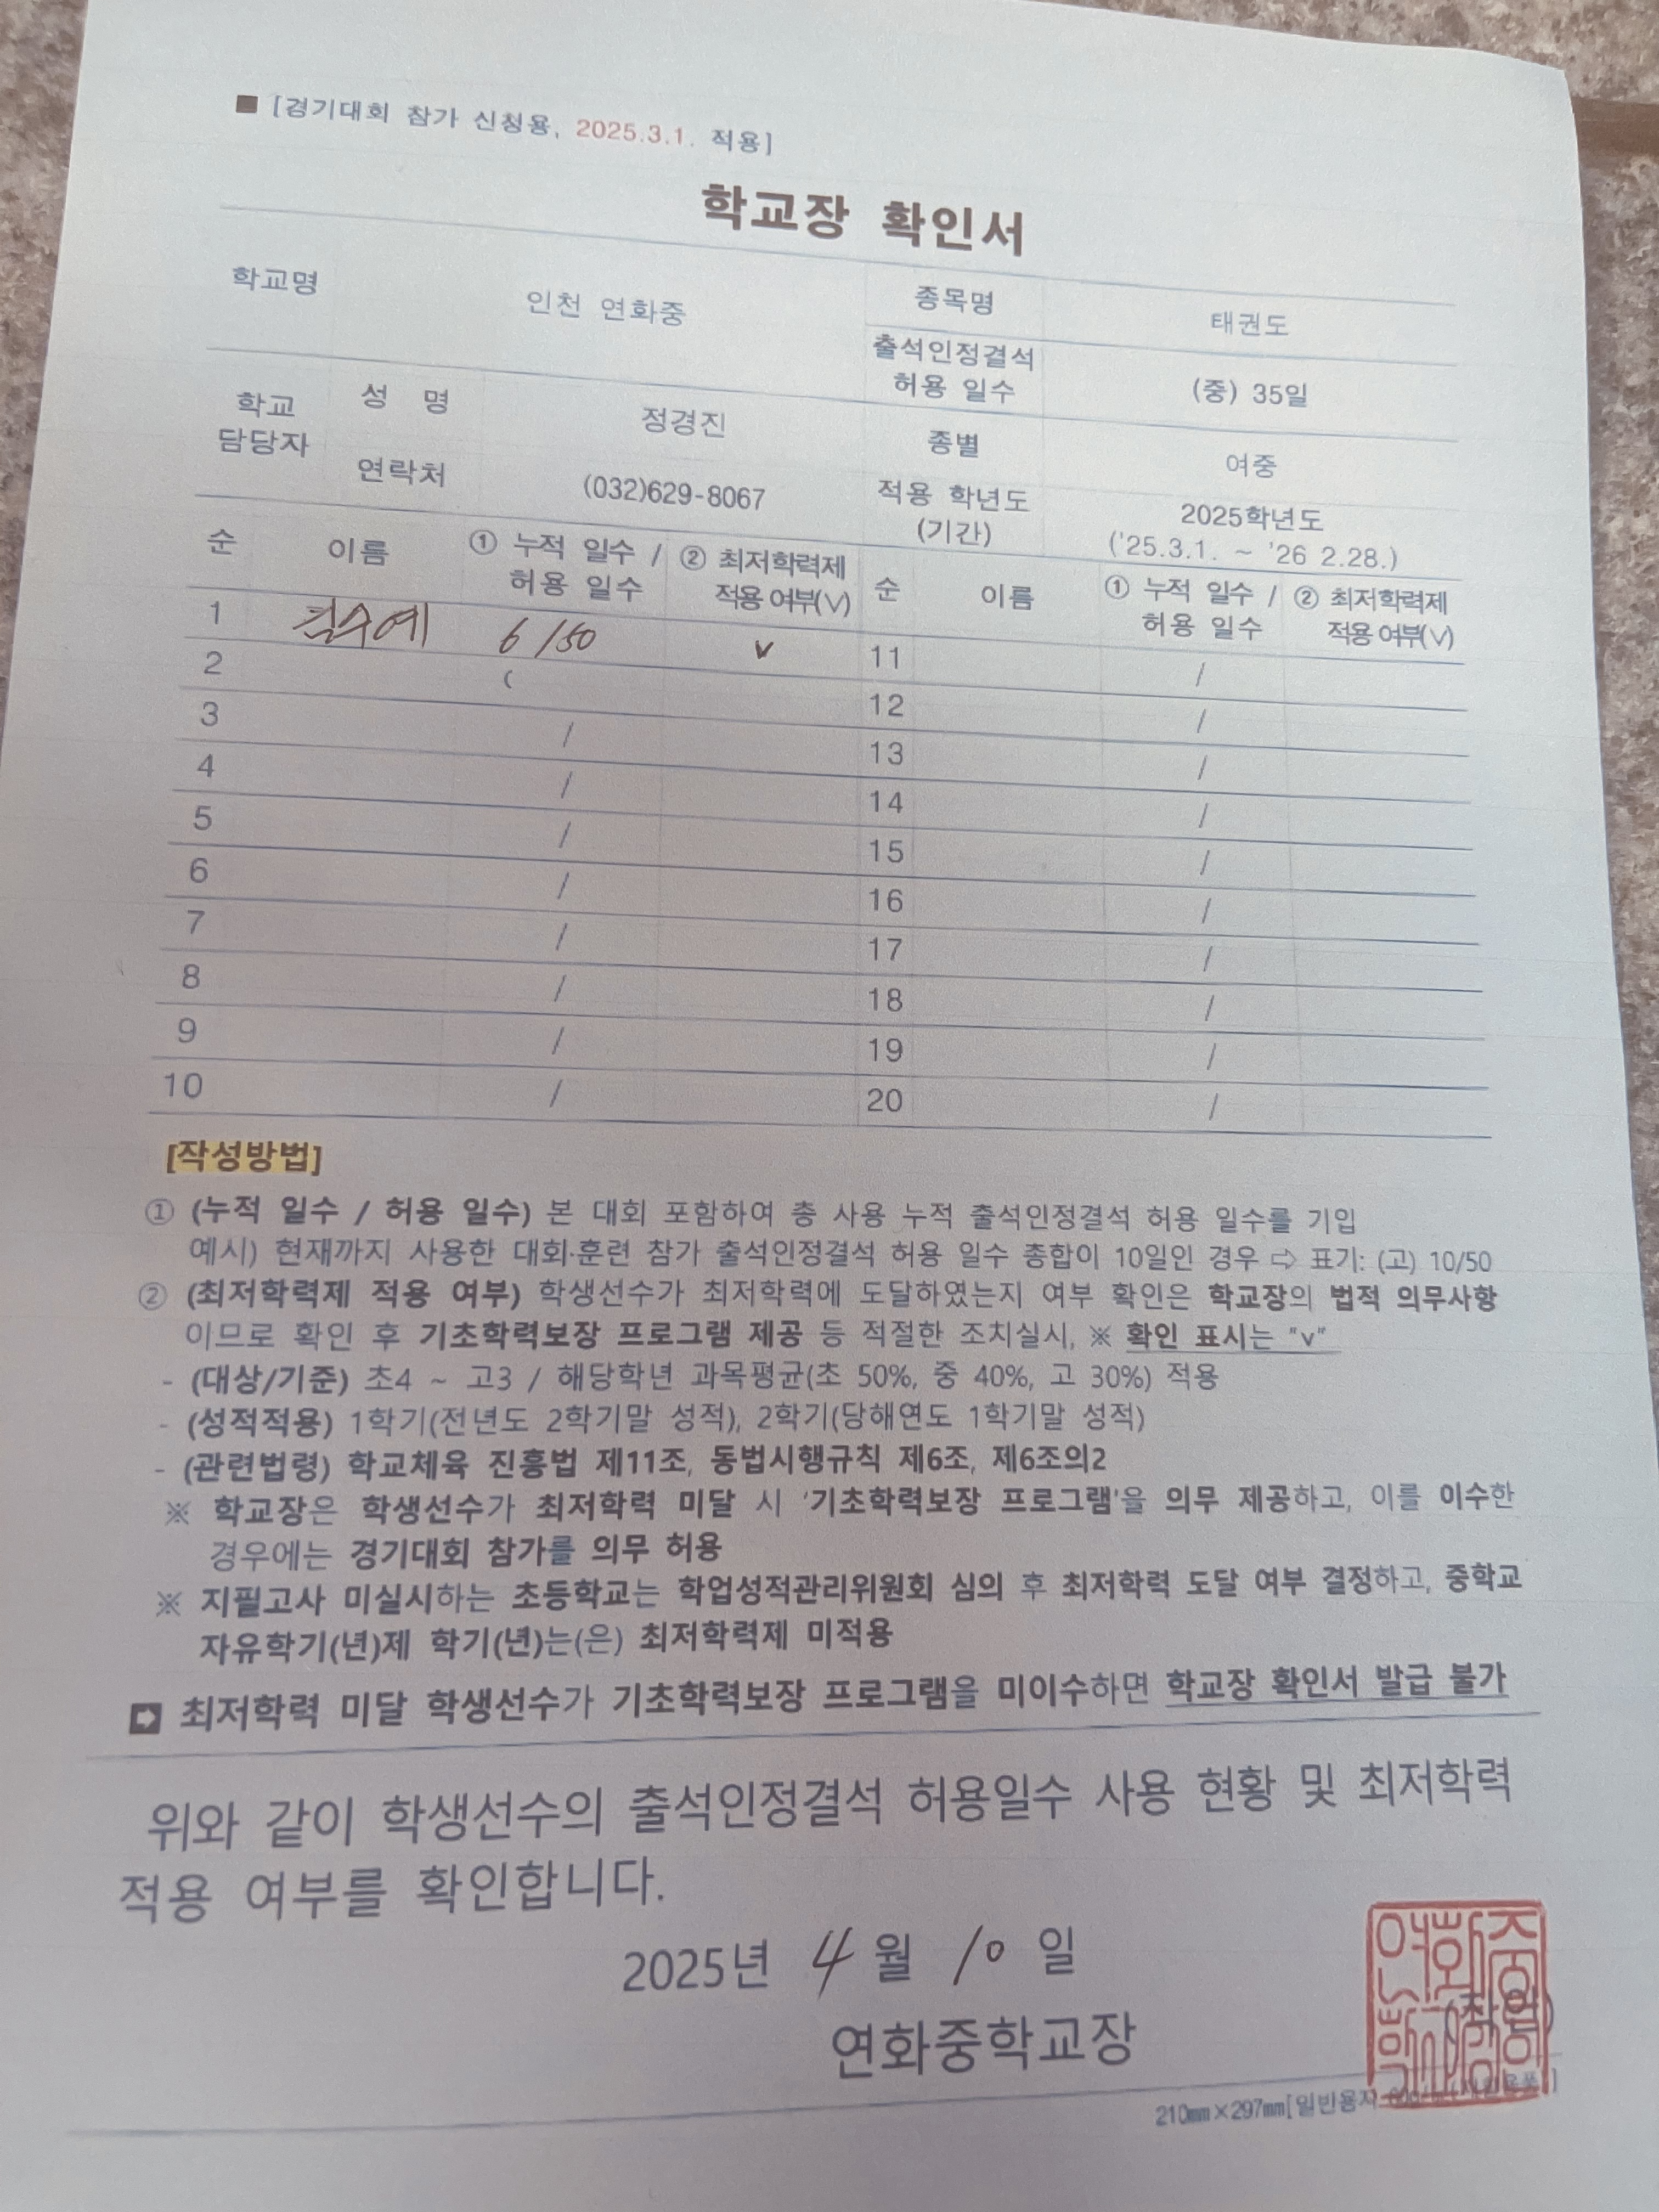 ■ [경기대회 참가 신청용, 2025.3.1. 적용]
학교장 확인서
학교명 인천 연화중 종목명 태권도
출석인정결석 허용 일수 (중) 35일
학교 담당자 성 명 정경진 종별 여중
연락처 (032)629-8067 적용 학년도 (기간) 2025학년도 ('25.3.1. ~ '26 2.28.)
순 이름 ① 누적 일수 / 허용 일수 ② 최저학력제 적용 여부(V) 순 이름 ① 누적 일수 / 허용 일수 ② 최저학력제 적용 여부(V)
1 수예 6 /50 v 11 /
2 ( 12 /
3 / 13 /
4 / 14 /
5 / 15 /
6 / 16 /
7 / 17 /
8 / 18 /
9 / 19 /
10 / 20 /
[작성방법]
① (누적 일수 / 허용 일수) 본 대회 포함하여 총 사용 누적 출석인정결석 허용 일수를 기입
예시) 현재까지 사용한 대회·훈련 참가 출석인정결석 허용 일수 총합이 10일인 경우 ⇨ 표기: (고) 10/50
② (최저학력제 적용 여부) 학생선수가 최저학력에 도달하였는지 여부 확인은 학교장의 법적 의무사항
이므로 확인 후 기초학력보장 프로그램 제공 등 적절한 조치실시, ※ 확인 표시는 "v"
- (대상/기준) 초4 ~ 고3 / 해당학년 과목평균(초 50%, 중 40%, 고 30%) 적용
- (성적적용) 1학기(전년도 2학기말 성적), 2학기(당해연도 1학기말 성적)
- (관련법령) 학교체육 진흥법 제11조, 동법시행규칙 제6조, 제6조의2
※ 학교장은 학생선수가 최저학력 미달 시 '기초학력보장 프로그램'을 의무 제공하고, 이를 이수한
경우에는 경기대회 참가를 의무 허용
※ 지필고사 미실시하는 초등학교는 학업성적관리위원회 심의 후 최저학력 도달 여부 결정하고, 중학교
자유학기(년)제 학기(년)는(은) 최저학력제 미적용
➡ 최저학력 미달 학생선수가 기초학력보장 프로그램을 미이수하면 학교장 확인서 발급 불가
위와 같이 학생선수의 출석인정결석 허용일수 사용 현황 및 최저학력
적용 여부를 확인합니다.
2025년 4 월 10 일
연화중학교장 (직인)
210㎜×297㎜[일반용지